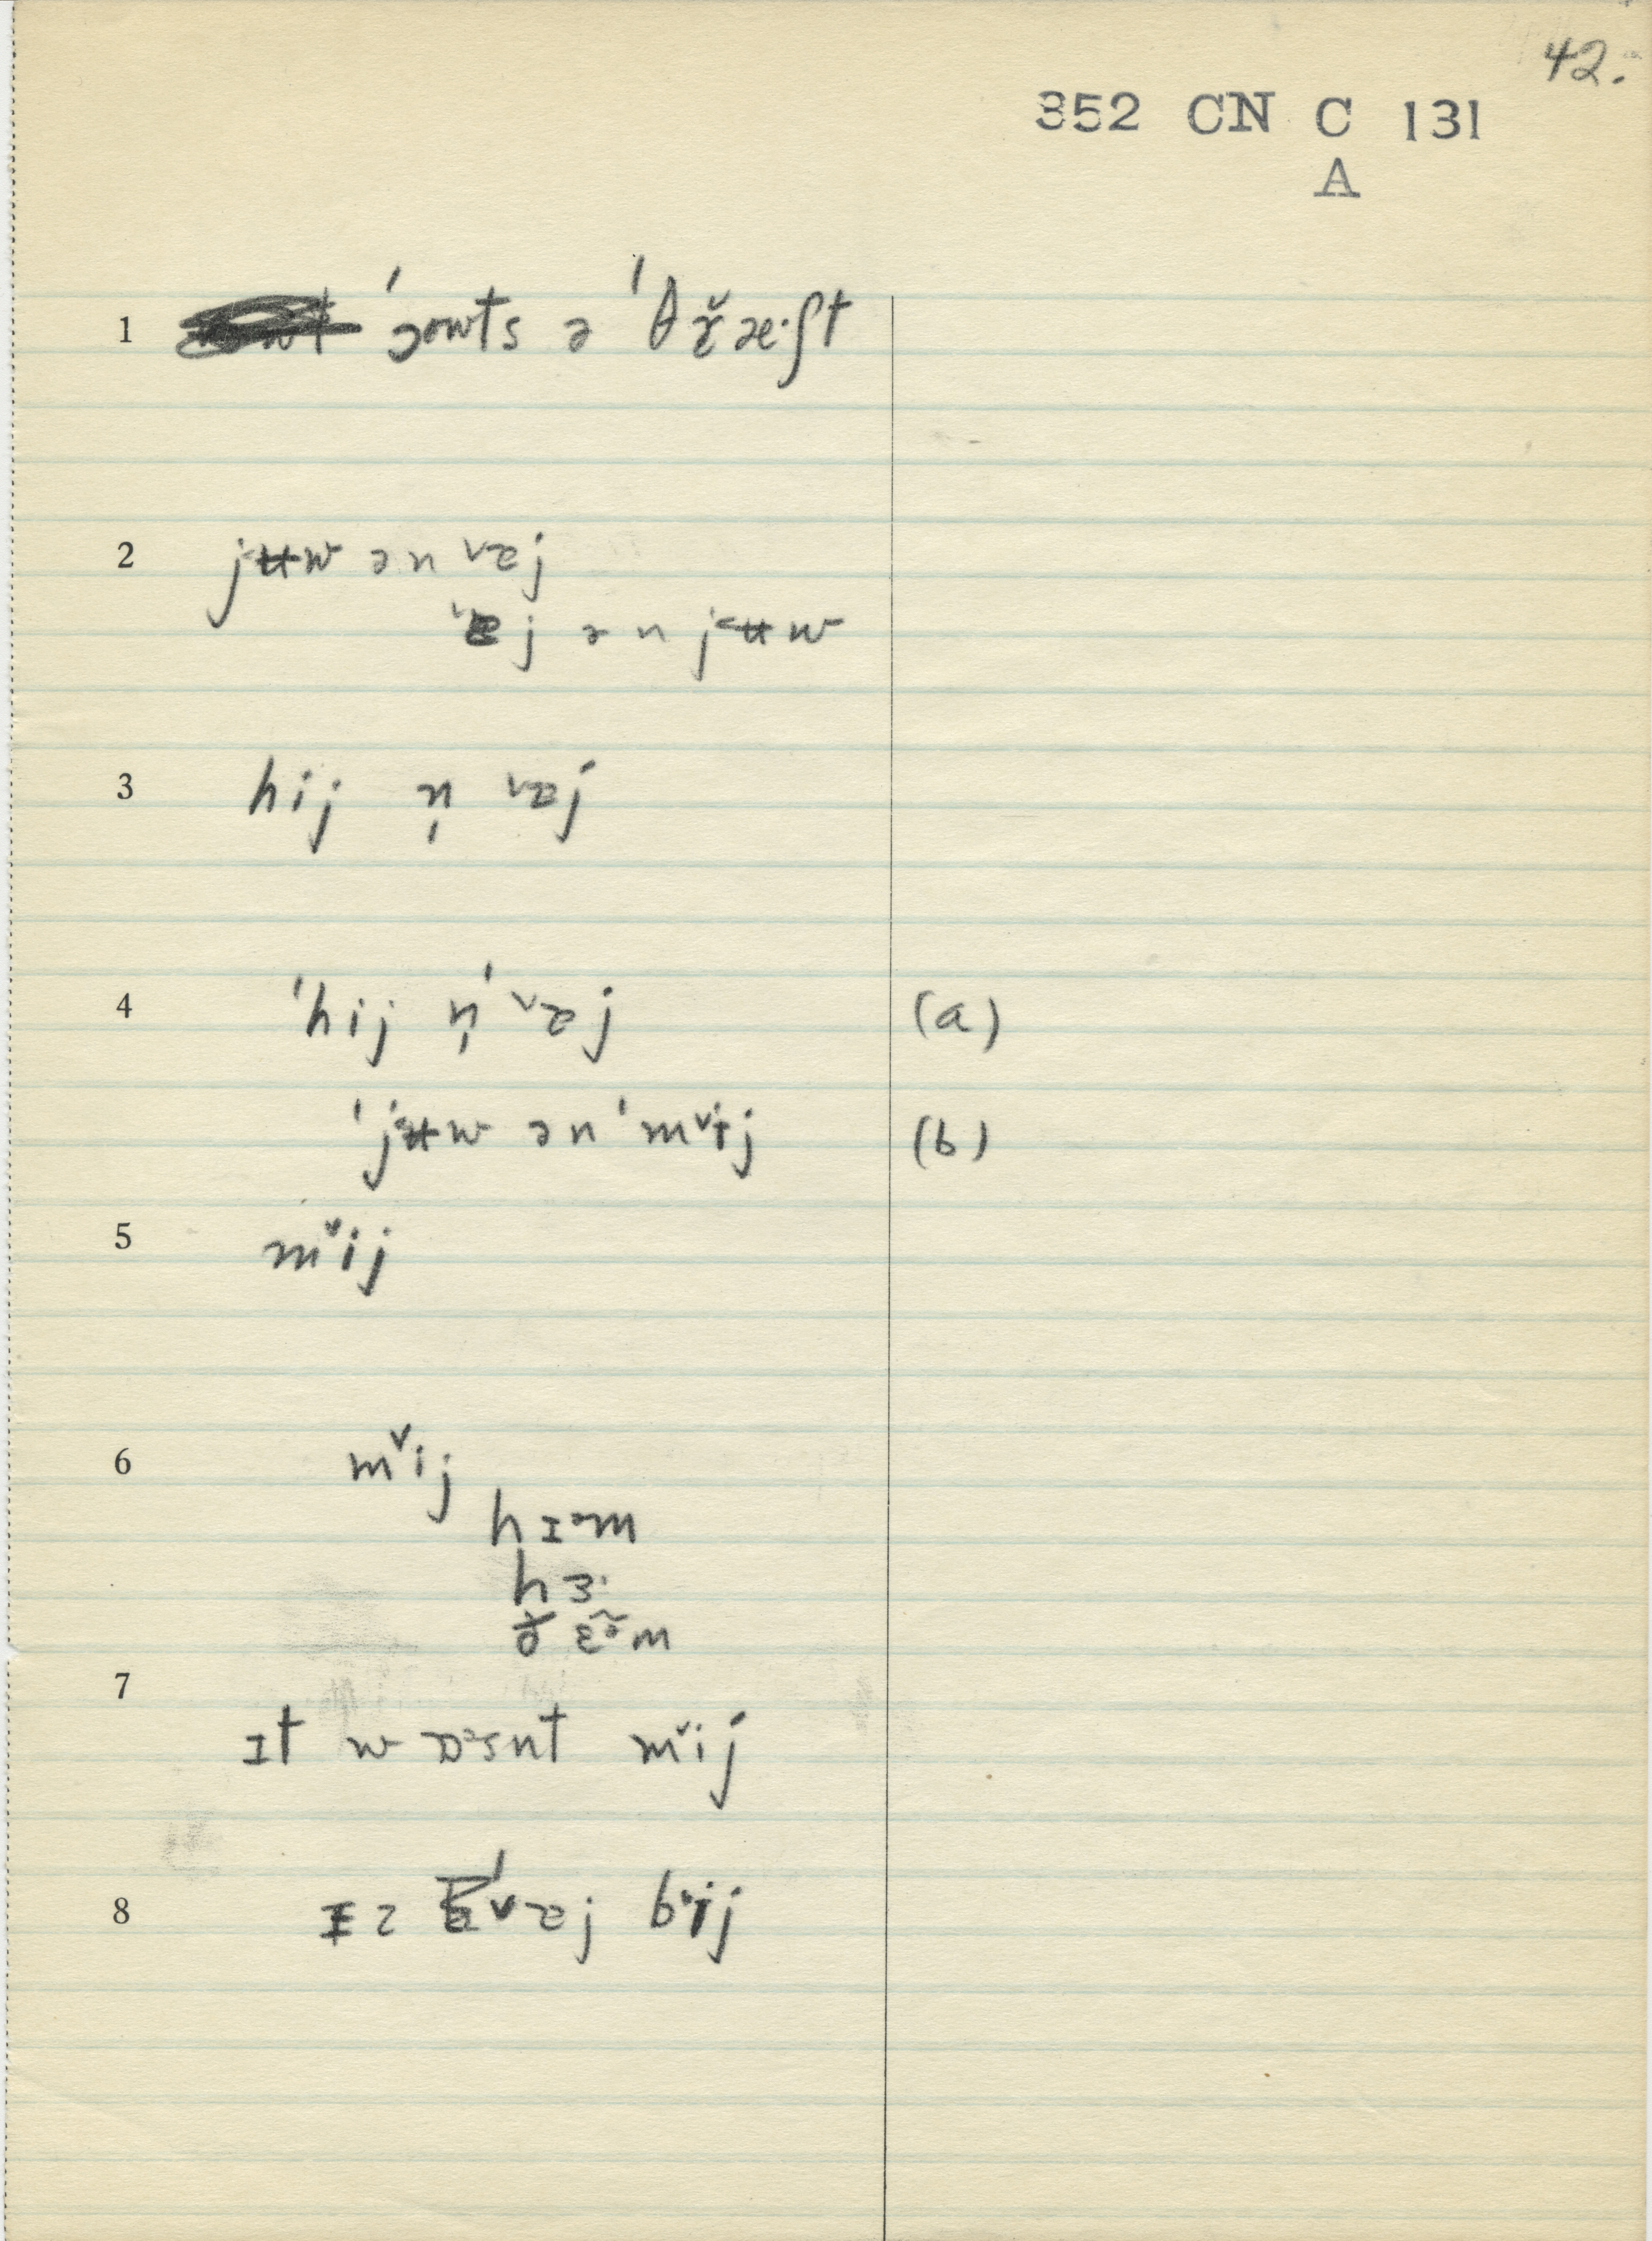 42.
352 CN C 131
A
1 ˈɔowts ə ˈθɤ̆æ·ʃt
2 jʉw ən ᵛɐj
ˈɐj ən jʉw
3 hij n̩ ᵛɐj
4 ˈhij n̩ ˈᵛɐj (a)
ˈjʉw ən ˈmᵛij (b)
5 mᵛij
6 mᵛij
hɪᵊm
hɜ·
ðɛə̆m
7
ɪt wɒᵊsnt mᵛij
8 ɪz ˈᵛɐj bᵛij